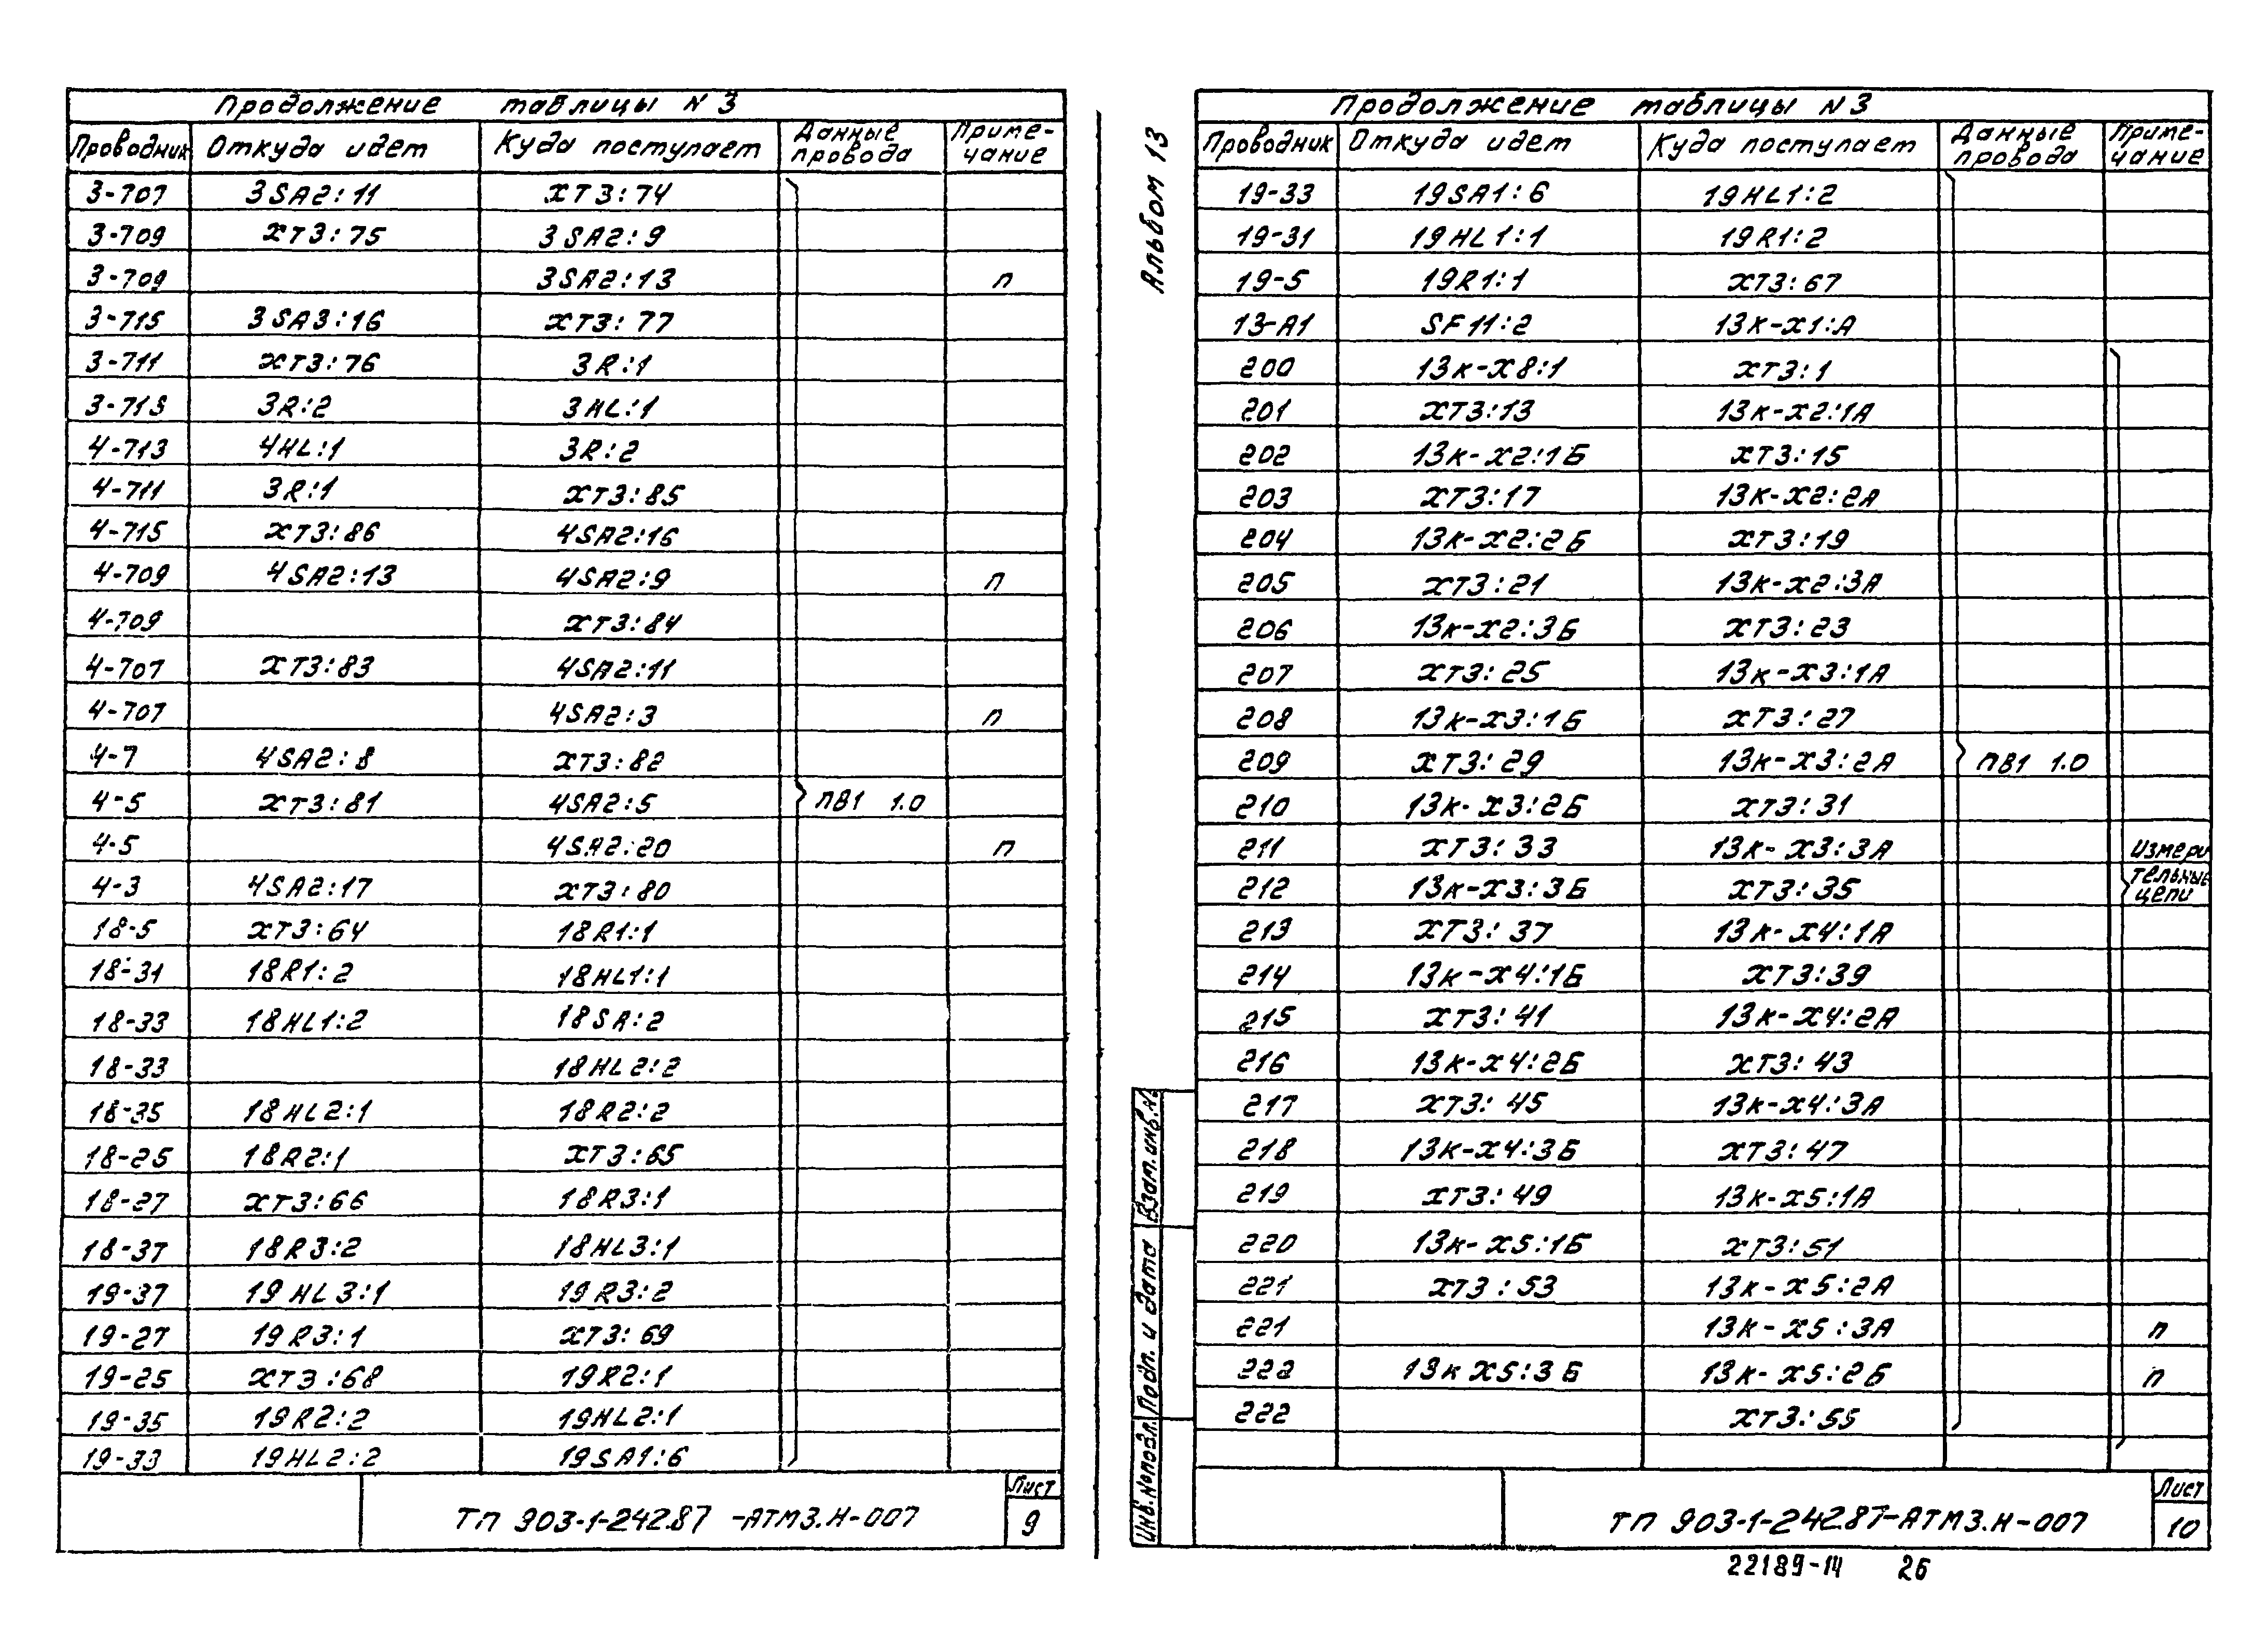 Продолжение таблицы N 3
Проводник Откуда идет Куда поступает Данные провода Приме-чание
3-707 3SA2:11 XT3:74
3-709 XT3:75 3SA2:9
3-709 3SA2:13 п
3-715 3SA3:16 XT3:77
3-711 XT3:76 3R:1
3-713 3R:2 3HL:1
4-713 4HL:1 3R:2
4-711 3R:1 XT3:85
4-715 XT3:86 4SA2:16
4-709 4SA2:13 4SA2:9 п
4-709 XT3:84
4-707 XT3:83 4SA2:11
4-707 4SA2:3 п
4-7 4SA2:8 XT3:82
4-5 XT3:81 4SA2:5 ПВ1 1.0
4-5 4SA2:20 п
4-3 4SA2:17 XT3:80
18-5 XT3:64 18R1:1
18-31 18R1:2 18HL1:1
18-33 18HL1:2 18SA:2
18-33 18HL2:2
18-35 18HL2:1 18R2:2
18-25 18R2:1 XT3:65
18-27 XT3:66 18R3:1
18-37 18R3:2 18HL3:1
19-37 19HL3:1 19R3:2
19-27 19R3:1 XT3:69
19-25 XT3:68 19R2:1
19-35 19R2:2 19HL2:1
19-33 19HL2:2 19SA1:6
ТП 903-1-242.87 -АТМ3.Н-007
Лист
9
Альбом 13
Продолжение таблицы N 3
Проводник Откуда идет Куда поступает Данные провода Приме-чание
19-33 19SA1:6 19HL1:2
19-31 19HL1:1 19R1:2
19-5 19R1:1 XT3:67
13-A1 SF11:2 13К-Х1:А
200 13К-Х8:1 XT3:1
201 XT3:13 13К-Х2:1А
202 13К-Х2:1Б XT3:15
203 XT3:17 13К-Х2:2А
204 13К-Х2:2Б XT3:19
205 XT3:21 13К-Х2:3А
206 13К-Х2:3Б XT3:23
207 XT3:25 13К-Х3:1А
208 13К-Х3:1Б XT3:27
209 XT3:29 13К-Х3:2А ПВ1 1.0
210 13К-Х3:2Б XT3:31
211 XT3:33 13К-Х3:3А Измери
212 13К-Х3:3Б XT3:35 тельные цепи
213 XT3:37 13К-Х4:1А
214 13К-Х4:1Б XT3:39
215 XT3:41 13К-Х4:2А
216 13К-Х4:2Б XT3:43
217 XT3:45 13К-Х4:3А
218 13К-Х4:3Б XT3:47
219 XT3:49 13К-Х5:1А
220 13К-Х5:1Б XT3:51
221 XT3:53 13К-Х5:2А
221 13К-Х5:3А п
222 13К Х5:3Б 13К-Х5:2Б п
222 XT3:55
Инв.№подл. Подп. и дата Взам.инв.№
ТП 903-1-242.87-АТМ3.Н-007
Лист
10
22189-14 26